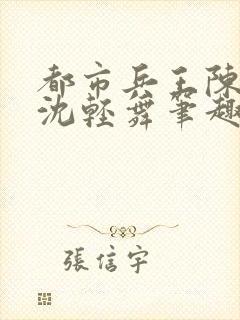 都市兵王陳
沈輕舞筆趣
張信宇